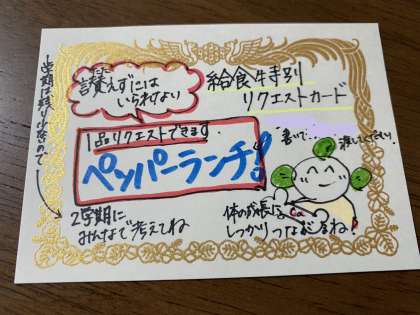 讃えずには
いられない
給食特別
リクエストカード
1品リクエストできます
ペッパーランチ!
書いて
渡してください。
1学期は残り少ないので
2学期に
みんなで考えてね
体の成長に
しっかりつなげるね!